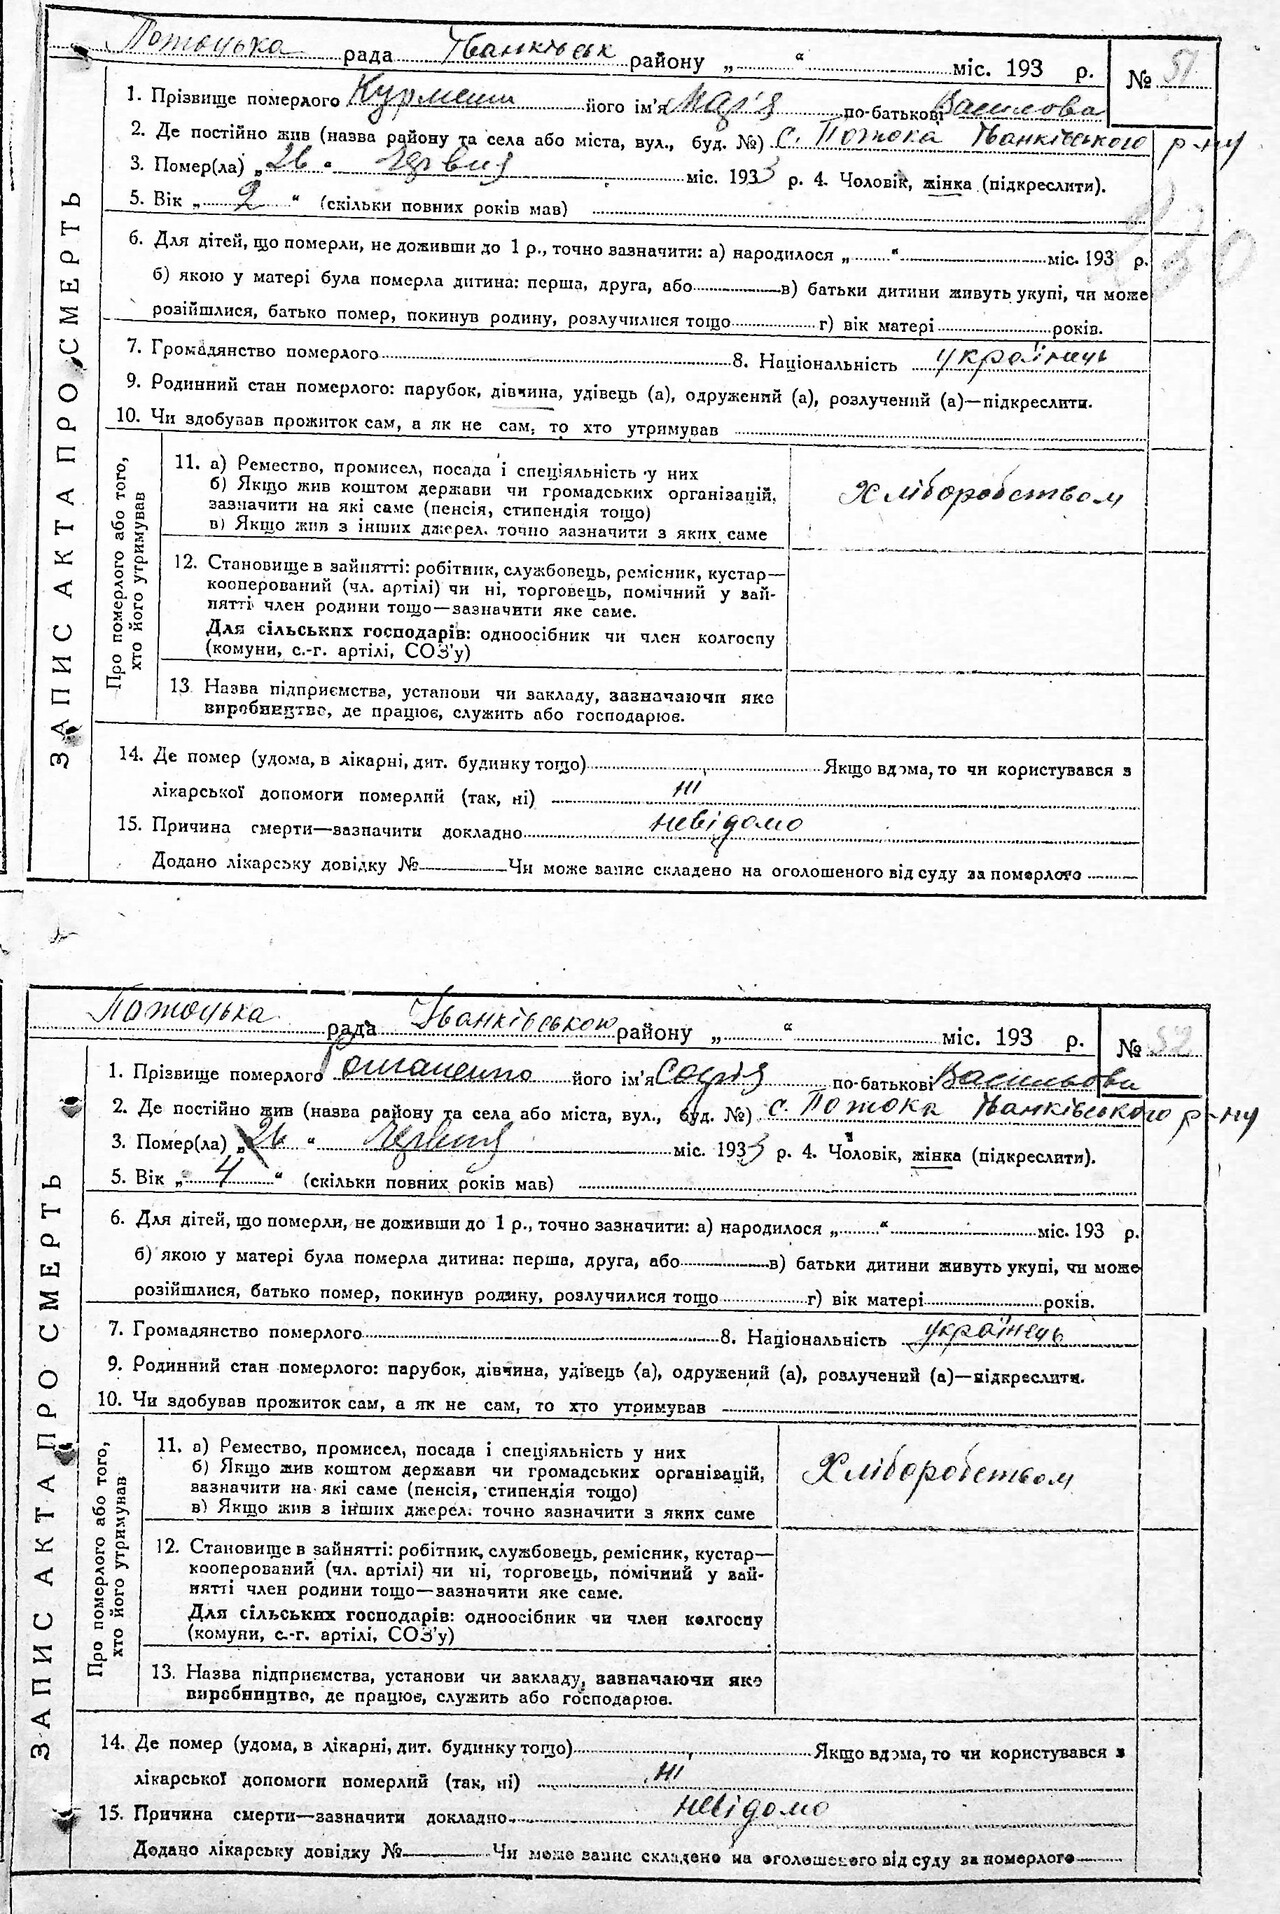 Потоцька рада Іванківськ району „ “ міс. 193 р. № 51
1. Прізвище померлого його ім'я Мар'я по-батькові Василова
2. Де постійно жив (назва району та села або міста, вул., буд. №) с. Потока Іванківського р-ну
3. Помер(ла) „26“ червня міс. 1933 р. 4. Чоловік, жінка (підкреслити).
5. Вік „ 2 “ (скільки повних років мав)
6. Для дітей, що померли, не доживши до 1 р., точно зазначити: а) народилося „ “ міс. 193 р.
б) якою у матері була померла дитина: перша, друга, або в) батьки дитини живуть укупі, чи може
розійшлися, батько помер, покинув родину, розлучилися тощо г) вік матері років.
7. Громадянство померлого 8. Національність українець
9. Родинний стан померлого: парубок, дівчина, удівець (а), одружений (а), розлучений (а)—підкреслити.
10. Чи здобував прожиток сам, а як не сам, то хто утримував
ЗАПИС АКТА ПРО СМЕРТЬ
Про померлого або того,
хто його утримував
11. а) Ремество, промисел, посада і спеціяльність у них
б) Якщо жив коштом держави чи громадських організацій,
зазначити на які саме (пенсія, стипендія тощо)
в) Якщо жив з інших джерел, точно зазначити з яких саме
Хліборобством
12. Становище в зайнятті: робітник, службовець, ремісник, кустар—
кооперований (чл. артілі) чи ні, торговець, помічний у зай-
нятті член родини тощо—зазначити яке саме.
Для сільських господарів: одноосібник чи член колгоспу
(комуни, с.-г. артілі, СОЗ'у)
13. Назва підприємства, установи чи закладу, зазначаючи яке
виробництво, де працює, служить або господарює.
14. Де помер (удома, в лікарні, дит. будинку тощо) Якщо вдома, то чи користувався з
лікарської допомоги померлий (так, ні) ні
15. Причина смерти—зазначити докладно невідомо
Додано лікарську довідку № Чи може запис складено на оголошеного від суду за померлого
Потоцька рада Іванківською району „ “ міс. 193 р. № 52
1. Прізвище померлого його ім'я Софія по-батькові Васильова
2. Де постійно жив (назва району та села або міста, вул., буд. №) с. Потока Іванківського р-ну
3. Помер(ла) „26“ червня міс. 1933 р. 4. Чоловік, жінка (підкреслити).
5. Вік „ 4 “ (скільки повних років мав)
6. Для дітей, що померли, не доживши до 1 р., точно зазначити: а) народилося „ “ міс. 193 р.
б) якою у матері була померла дитина: перша, друга, або в) батьки дитини живуть укупі, чи може
розійшлися, батько помер, покинув родину, розлучилися тощо г) вік матері років.
7. Громадянство померлого 8. Національність українець
9. Родинний стан померлого: парубок, дівчина, удівець (а), одружений (а), розлучений (а)—підкреслити.
10. Чи здобував прожиток сам, а як не сам, то хто утримував
ЗАПИС АКТА ПРО СМЕРТЬ
Про померлого або того,
хто його утримував
11. а) Ремество, промисел, посада і спеціяльність у них
б) Якщо жив коштом держави чи громадських організацій,
зазначити на які саме (пенсія, стипендія тощо)
в) Якщо жив з інших джерел, точно зазначити з яких саме
Хліборобством
12. Становище в зайнятті: робітник, службовець, ремісник, кустар—
кооперований (чл. артілі) чи ні, торговець, помічний у зай-
нятті член родини тощо—зазначити яке саме.
Для сільських господарів: одноосібник чи член колгоспу
(комуни, с.-г. артілі, СОЗ'у)
13. Назва підприємства, установи чи закладу, зазначаючи яке
виробництво, де працює, служить або господарює.
14. Де помер (удома, в лікарні, дит. будинку тощо) Якщо вдома, то чи користувався з
лікарської допомоги померлий (так, ні) ні
15. Причина смерти—зазначити докладно невідомо
Додано лікарську довідку № Чи може запис складено на оголошеного від суду за померлого